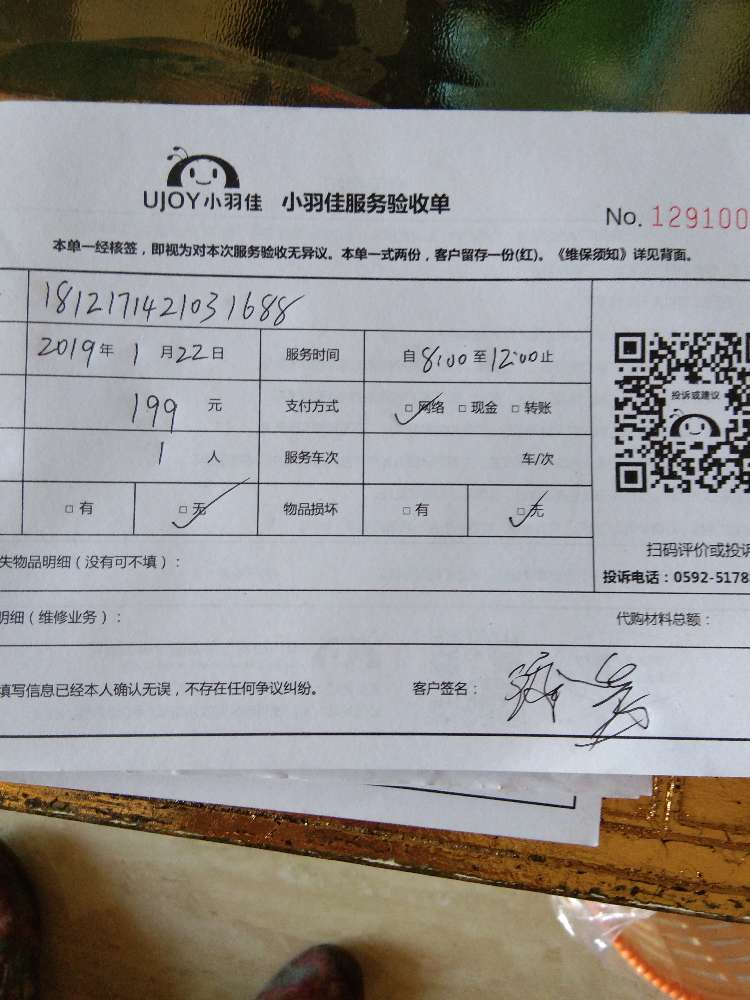 UJOY小羽佳 小羽佳服务验收单
No. 129100
本单一经核签，即视为对本次服务验收无异议。本单一式两份，客户留存一份(红)。《维保须知》详见背面。
1812171421031688
2019年 1月22日 服务时间 自8:00至12:00止
199 元 支付方式 □网络 □现金 □转账
1 人 服务车次 车/次
□有 □无 物品损坏 □有 □无
投诉或建议
扫码评价或投诉
投诉电话：0592-5178
失物品明细（没有可不填）：
明细（维修业务）： 代购材料总额：
填写信息已经本人确认无误，不存在任何争议纠纷。 客户签名：